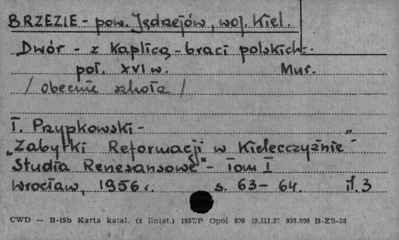 BRZEZIE - pow. Jędrzejów, woj. Kiel.
Dwór - z kaplicą - braci polskich.
poł. XVI w. Mur.
/ obecnie szkoła /
T. Przypkowski -
„Zabytki Reformacji w Kielecczyźnie"
Studia Renesansowe" - Tom I
Wrocław, 1956 r. s. 63-64 il. 3
CWD — B-15b Karta katal. (z liniat.) 1857/P Opol 820